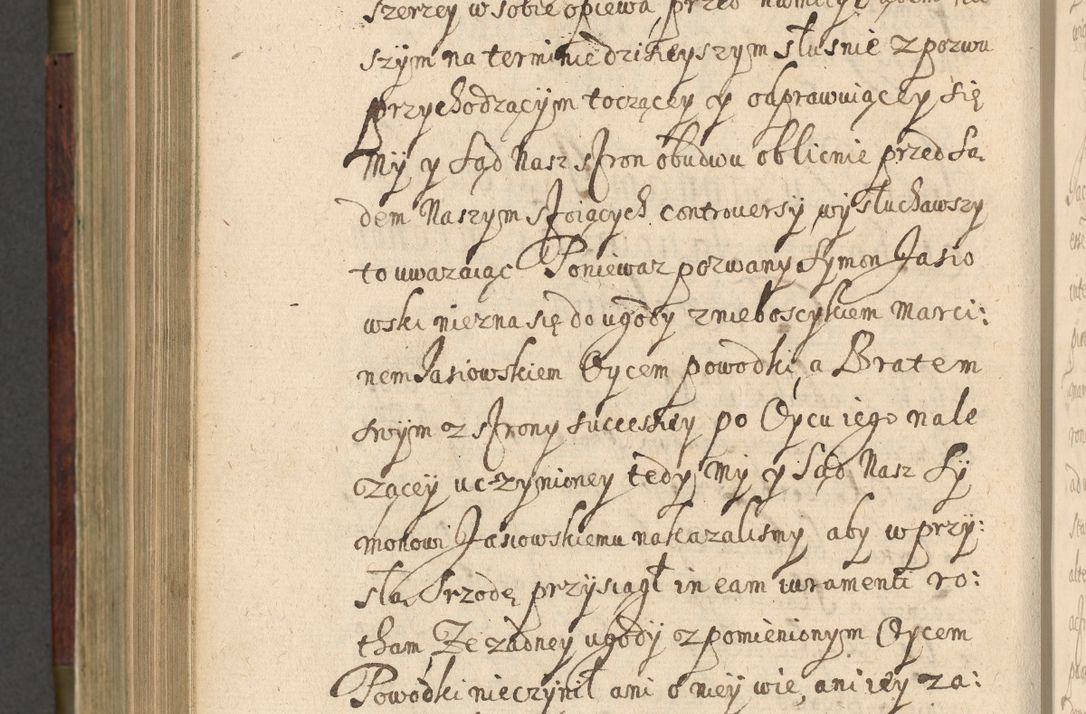 szerzey w sobie opiewa, przed nami y sądem na
szym na terminie dzisieyszym słusnie z pozwu
przychodzącym toczącey y odprawuiącey się
My y Sąd Nasz stron obudwu oblicnie przed Są
dem Naszym stoiących controuersÿ wysłuchawszy
to uwazaiąc Poniewaz pozwany Symon Jasio
wski niezna się do ugody z nieboscykiem Marci:
nem Jasiowskiem Oycem powodki, a Bratem
swym z strony succeskiey po Oycu iego nale
zącey uczynioney tedy My y Sąd Nasz Sy
monowi Jasiowskiemu nakazalismy aby w przy:
słą Srzodę przysiągł in eam iuramenti ro:
tham Ze zadney ugody z pomienionym Oycem
Powodki nieczynił ani o niey wie, ani iey za: